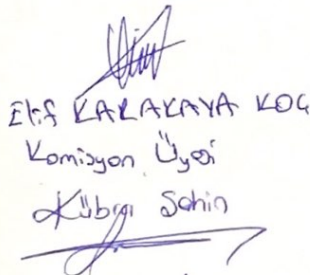 Elif KARAKAYA KOÇ
Komisyon Üyesi
Kübra Şahin